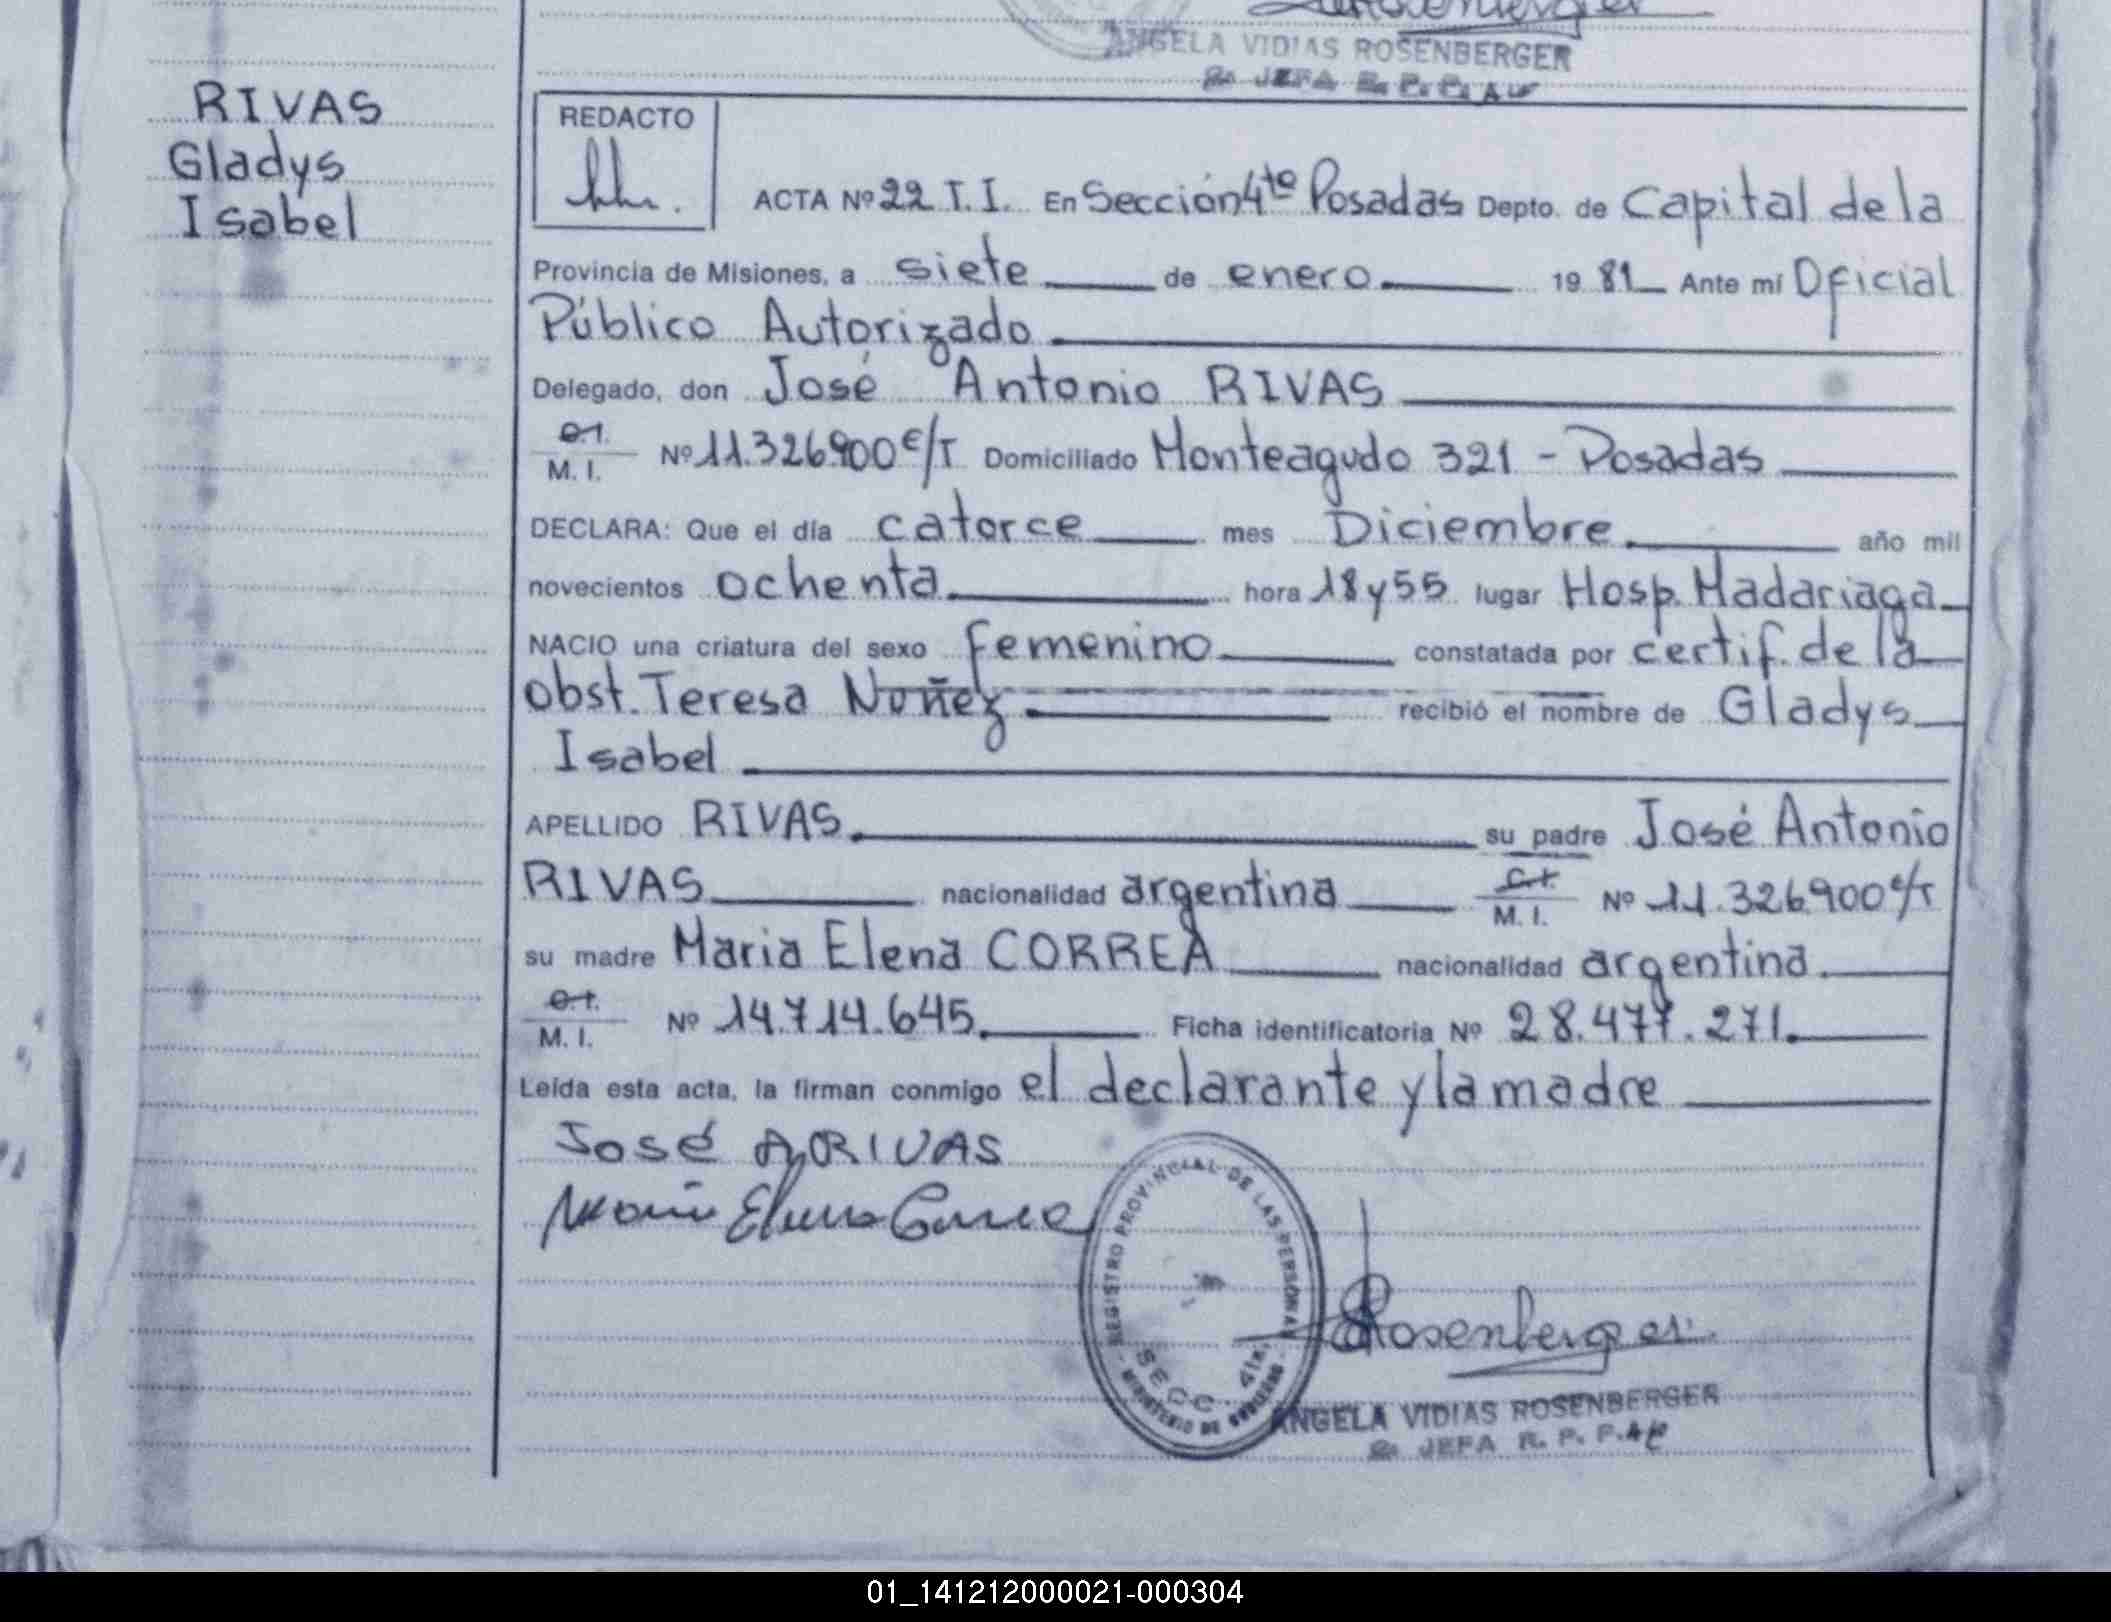 Rosenberger
ANGELA VIDIAS ROSENBERGER
JEFA R. P. P.
RIVAS
Gladys
Isabel
REDACTO
ACTA Nº 22 T. I. En Sección 4tº Posadas Depto. de Capital de la
Provincia de Misiones, a siete de enero 1981 Ante mí Oficial
Público Autorizado
Delegado, don José Antonio RIVAS
C.I. M. I. Nº 11.326.900 C/T Domiciliado Monteagudo 321 - Posadas
DECLARA: Que el día catorce mes Diciembre año mil
novecientos ochenta hora 18 y 55 lugar Hosp. Madariaga
NACIO una criatura del sexo femenino constatada por certif. de la
obst. Teresa Nuñez recibió el nombre de Gladys
Isabel
APELLIDO RIVAS su padre José Antonio
RIVAS nacionalidad argentina C.I. M. I. Nº 11.326.900 C/T
su madre Maria Elena CORREA nacionalidad argentina
C.I. M. I. Nº 14.714.645. Ficha identificatoria Nº 28.477.271.
Leída esta acta, la firman conmigo el declarante y la madre
José A. RIVAS
Maria Elena Correa
REGISTRO PROVINCIAL DE LAS PERSONAS
SECC. 4ta.
MINISTERIO DE GOBIERNO
Rosenberger
ANGELA VIDIAS ROSENBERGER
JEFA R. P. P.
01_141212000021-000304